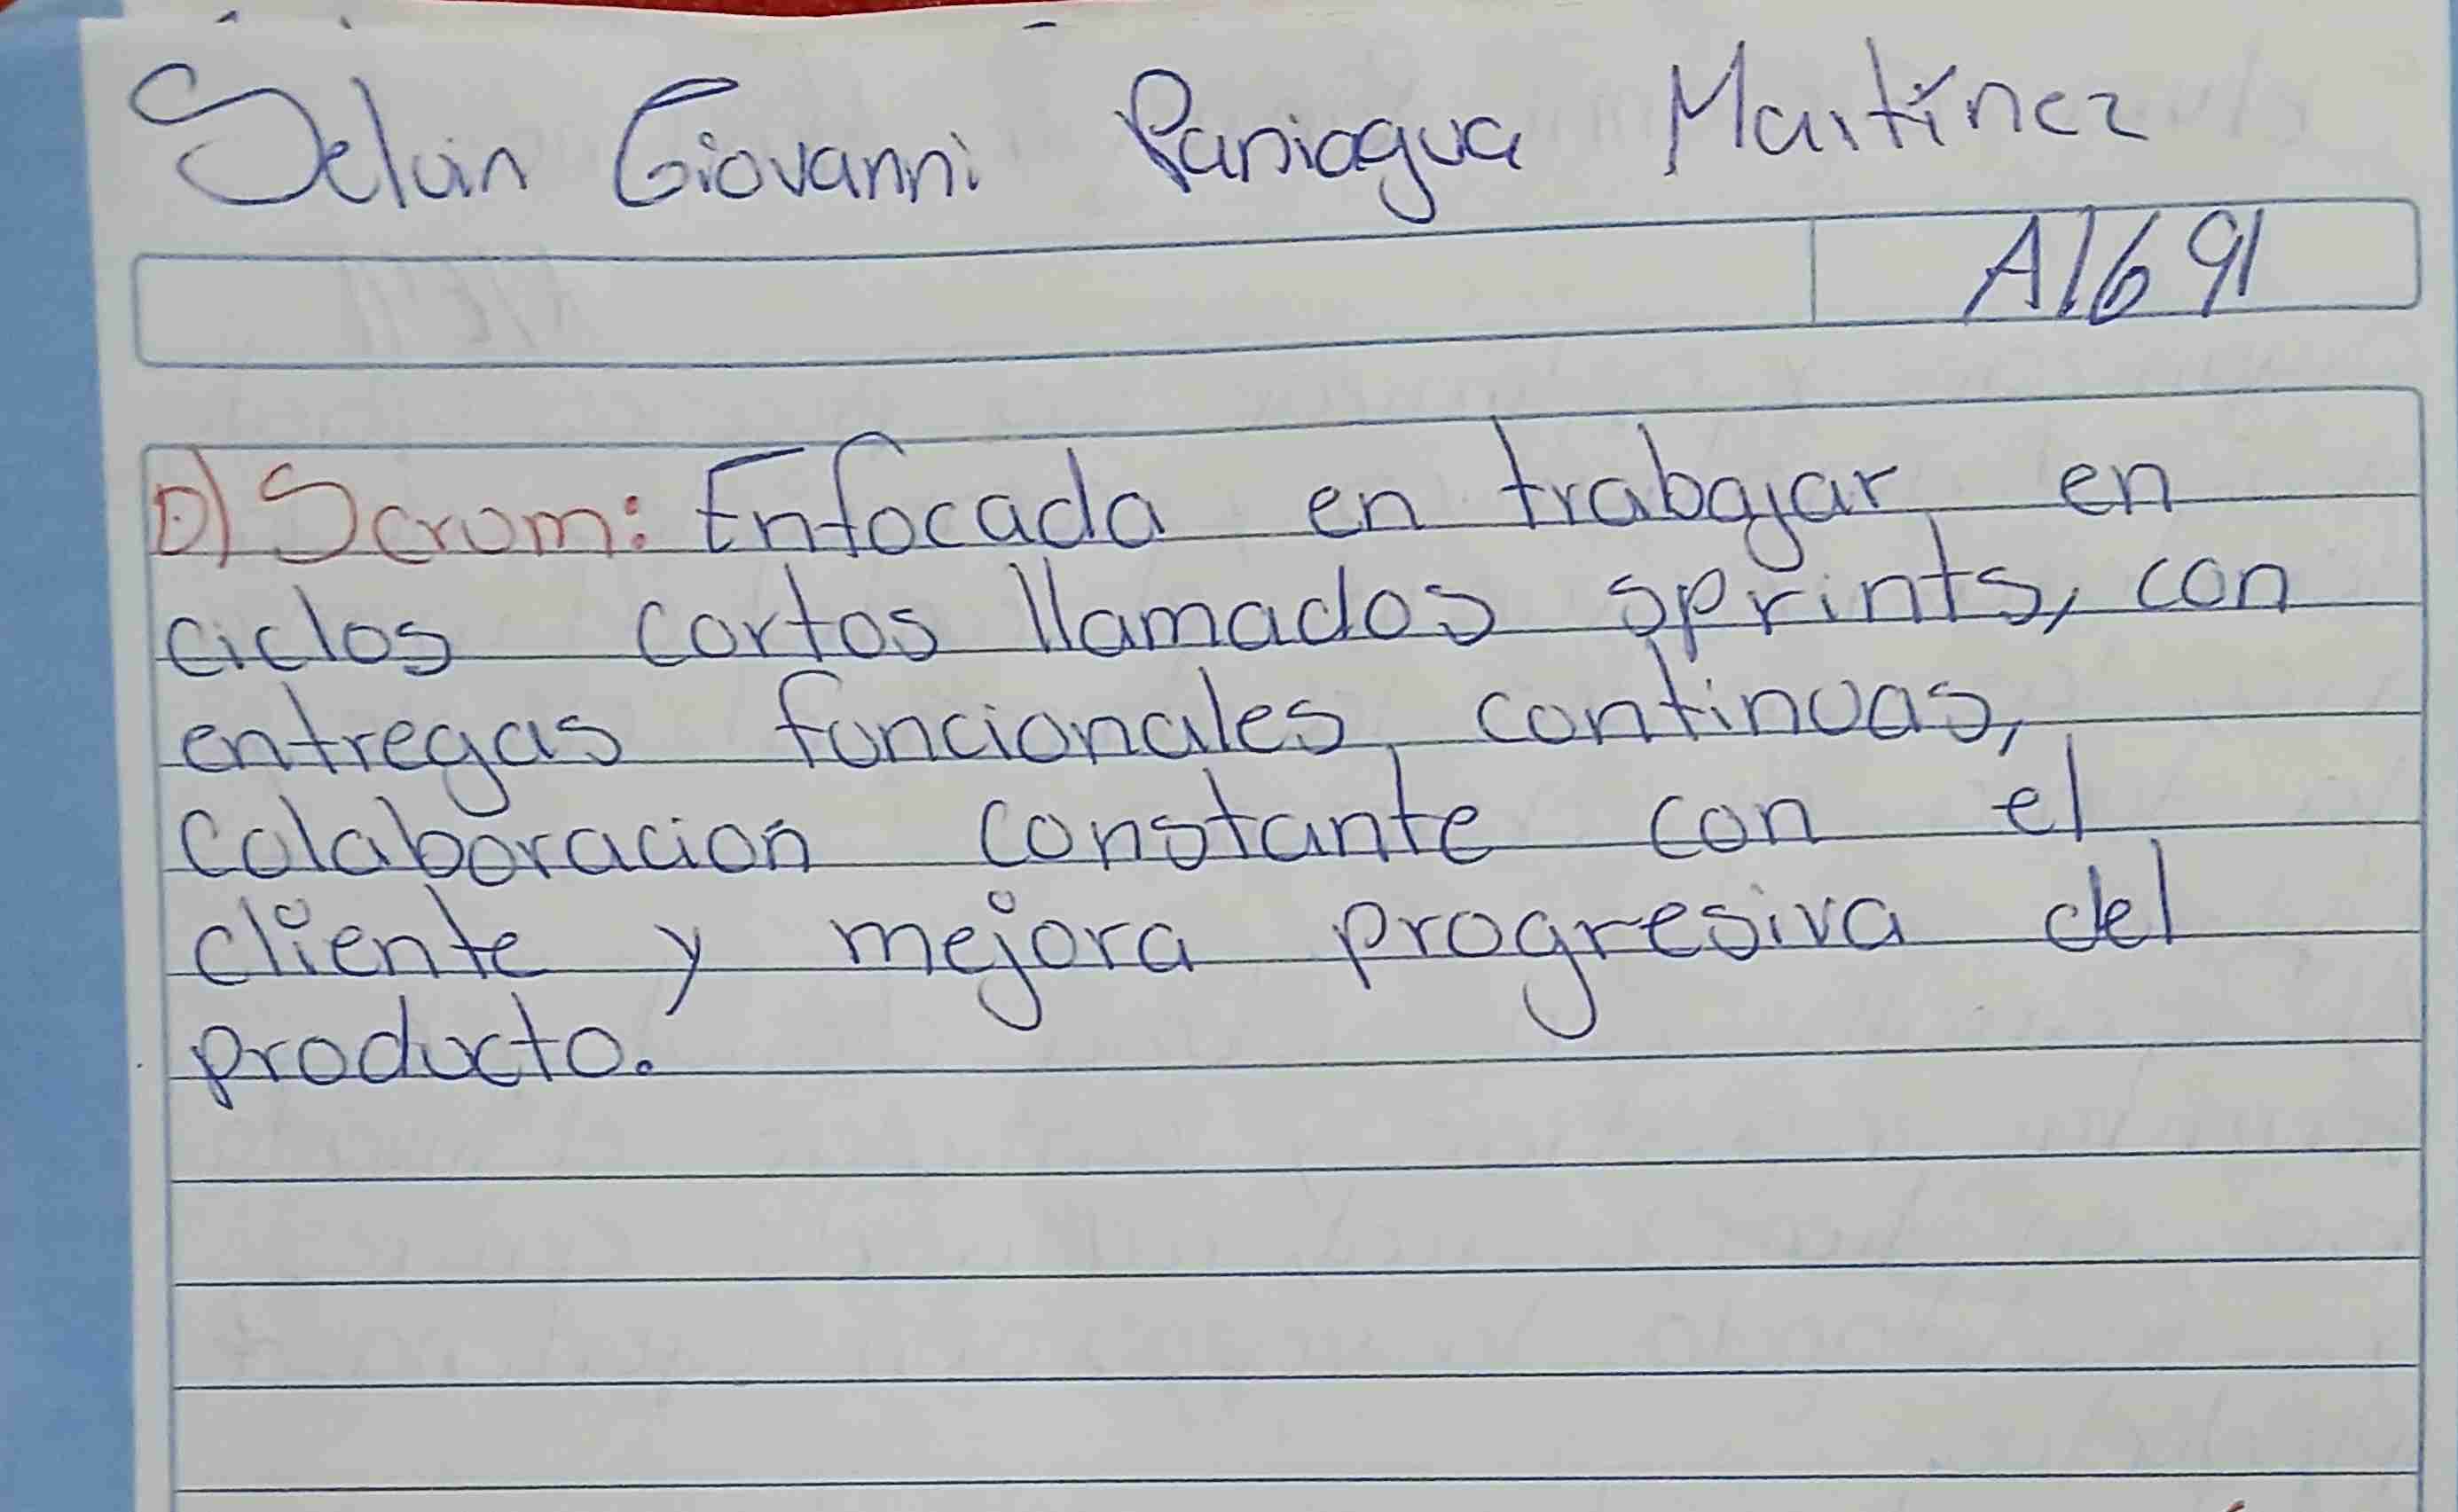 Selvin Giovanni Paniagua Martínez
A1691
D) Scrum: Enfocada en trabajar en
ciclos cortos llamados sprints, con
entregas funcionales continuas,
Colaboracion constante con el
cliente y mejora progresiva del
producto.